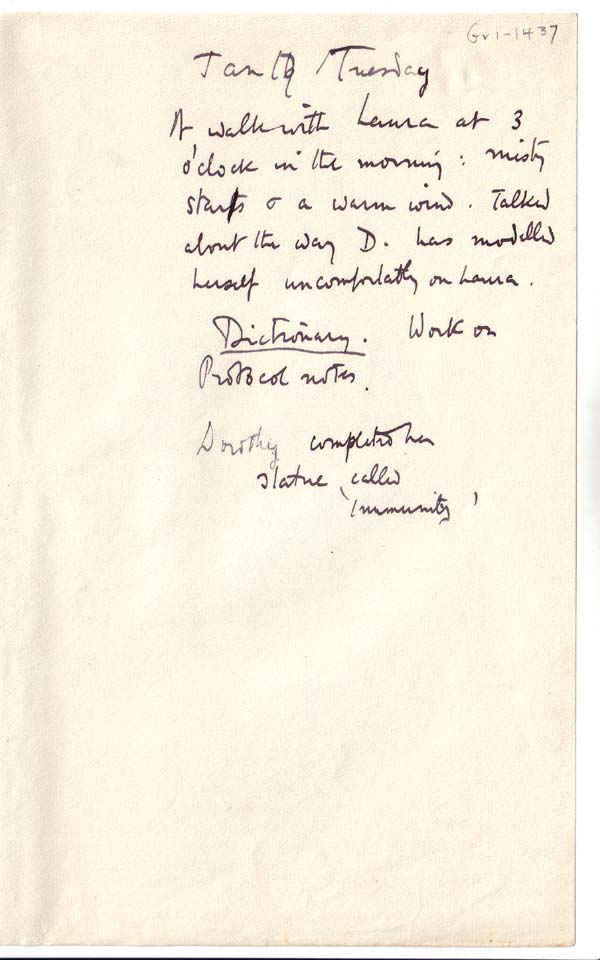 Gv1-1437
Jan 19 / Tuesday
A walk with Laura at 3
o'clock in the morning: misty
stars & a warm wind. Talked
about the way D. has modelled
herself uncomfortably on Laura.
Dictionary. Work on
Protocol notes.
Dorothy completed her
statue called
'Immunity'